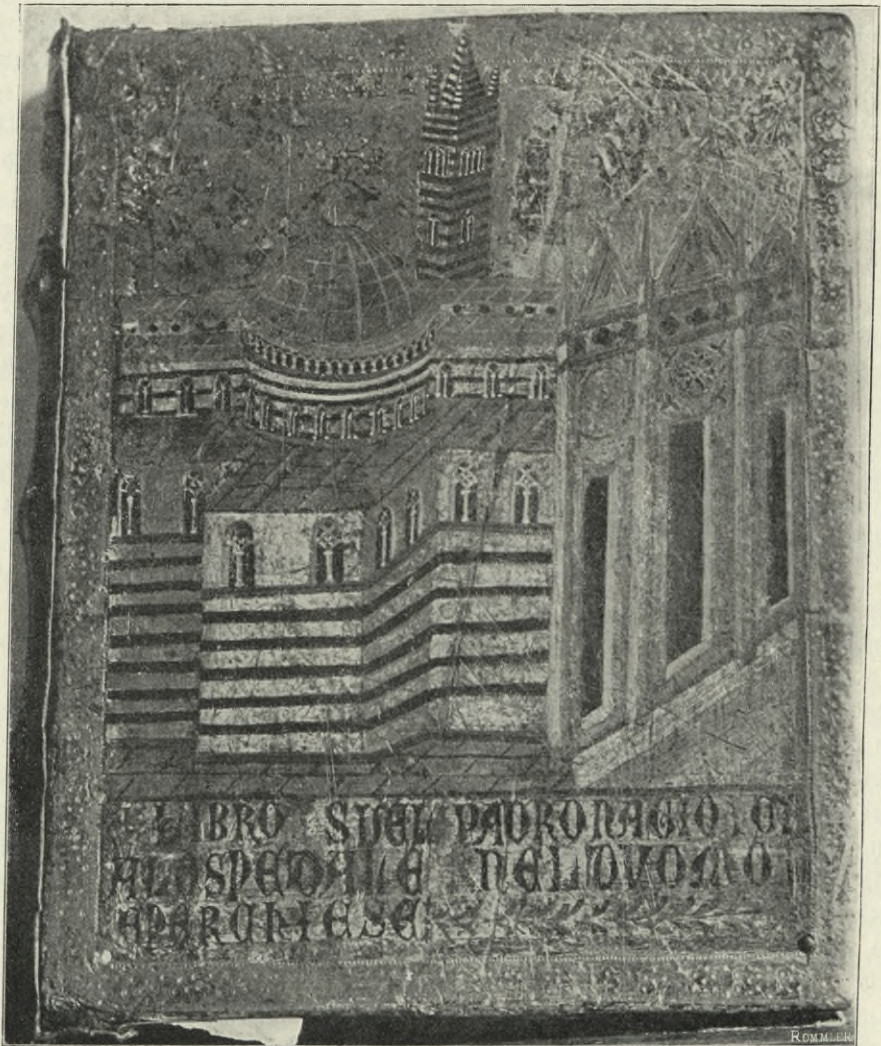 LIBRO SUEL PADRONAGIO
ALOSPEDALE NEL DUOMO
APERCHIESE
ROMMLER